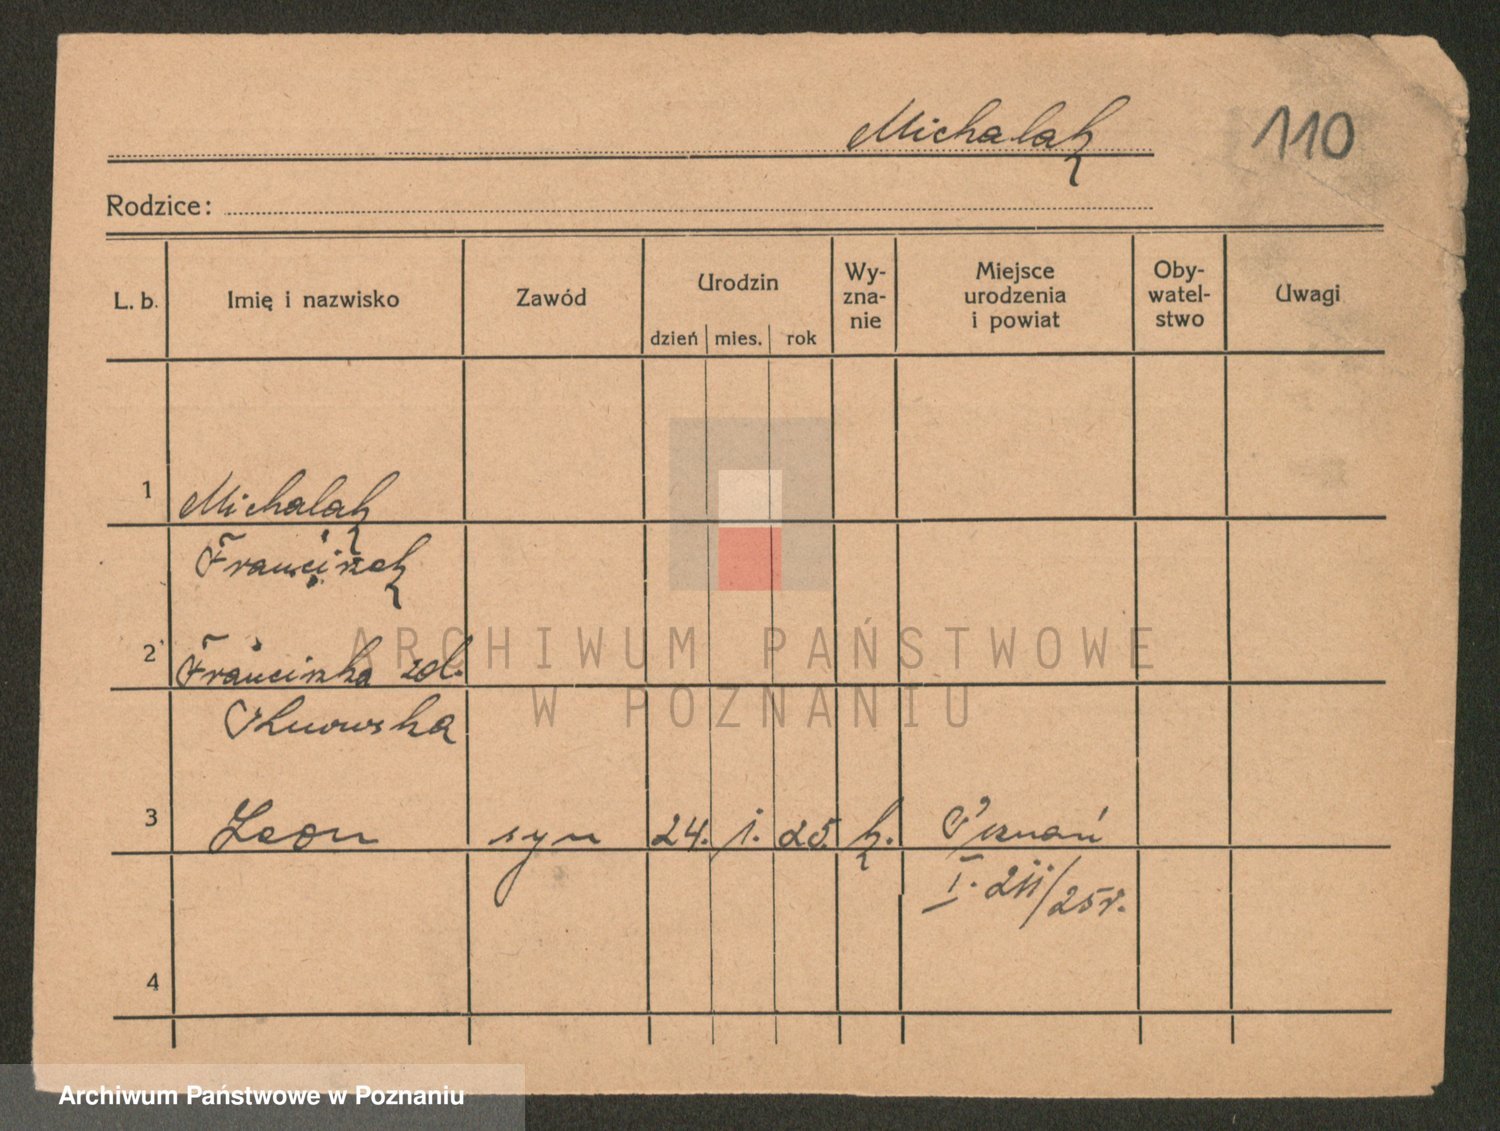 Michalak
110
Rodzice:
L. b.
Imię i nazwisko
Zawód
Urodzin
dzień mies. rok
Wy-
zna-
nie
Miejsce
urodzenia
i powiat
Oby-
watel-
stwo
Uwagi
1 Michalak
Franciszek
2 Franciszka zd.
3 Leon syn 24. 1. 25. k. Poznań
I. 211/25r.
4
ARCHIWUM PAŃSTWOWE
W POZNANIU
Archiwum Państwowe w Poznaniu